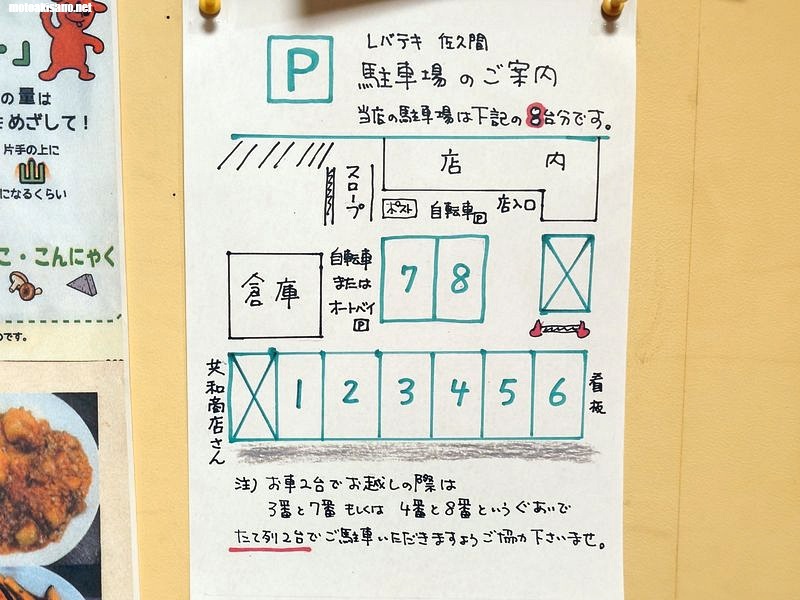 motoakisano.net
の量は
めざして!
片手の上に
山
になるくらい
こ・こんにゃく
のです。
P
レバテキ 佐久間
駐車場のご案内
当店の駐車場は下記の8台分です。
店内
スロープ
ポスト
自転車P
店入口
倉庫
自転車
または
オートバイ
P
7 8
共和商店さん
1 2 3 4 5 6
看板
注) お車2台でお越しの際は
3番と7番 もしくは 4番と8番というぐあいで
たて列2台でご駐車いただきますようご協力下さいませ。